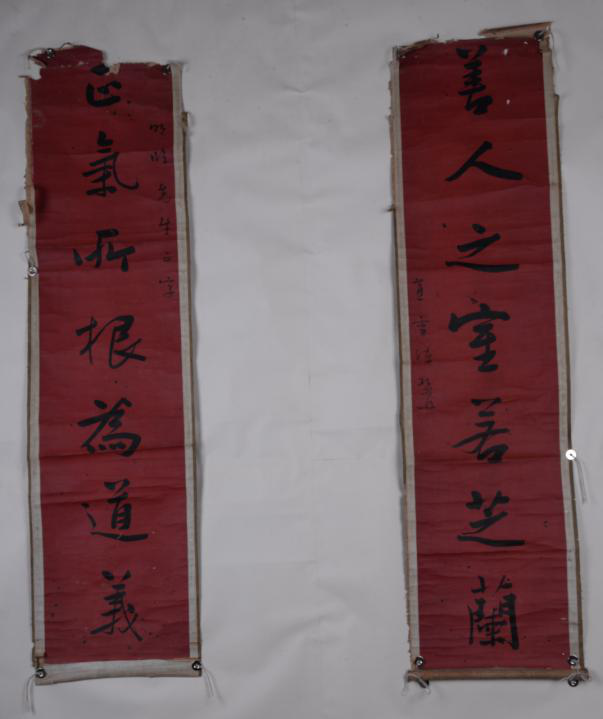 正氣所根為道義
先生正字
善人之室若芝蘭